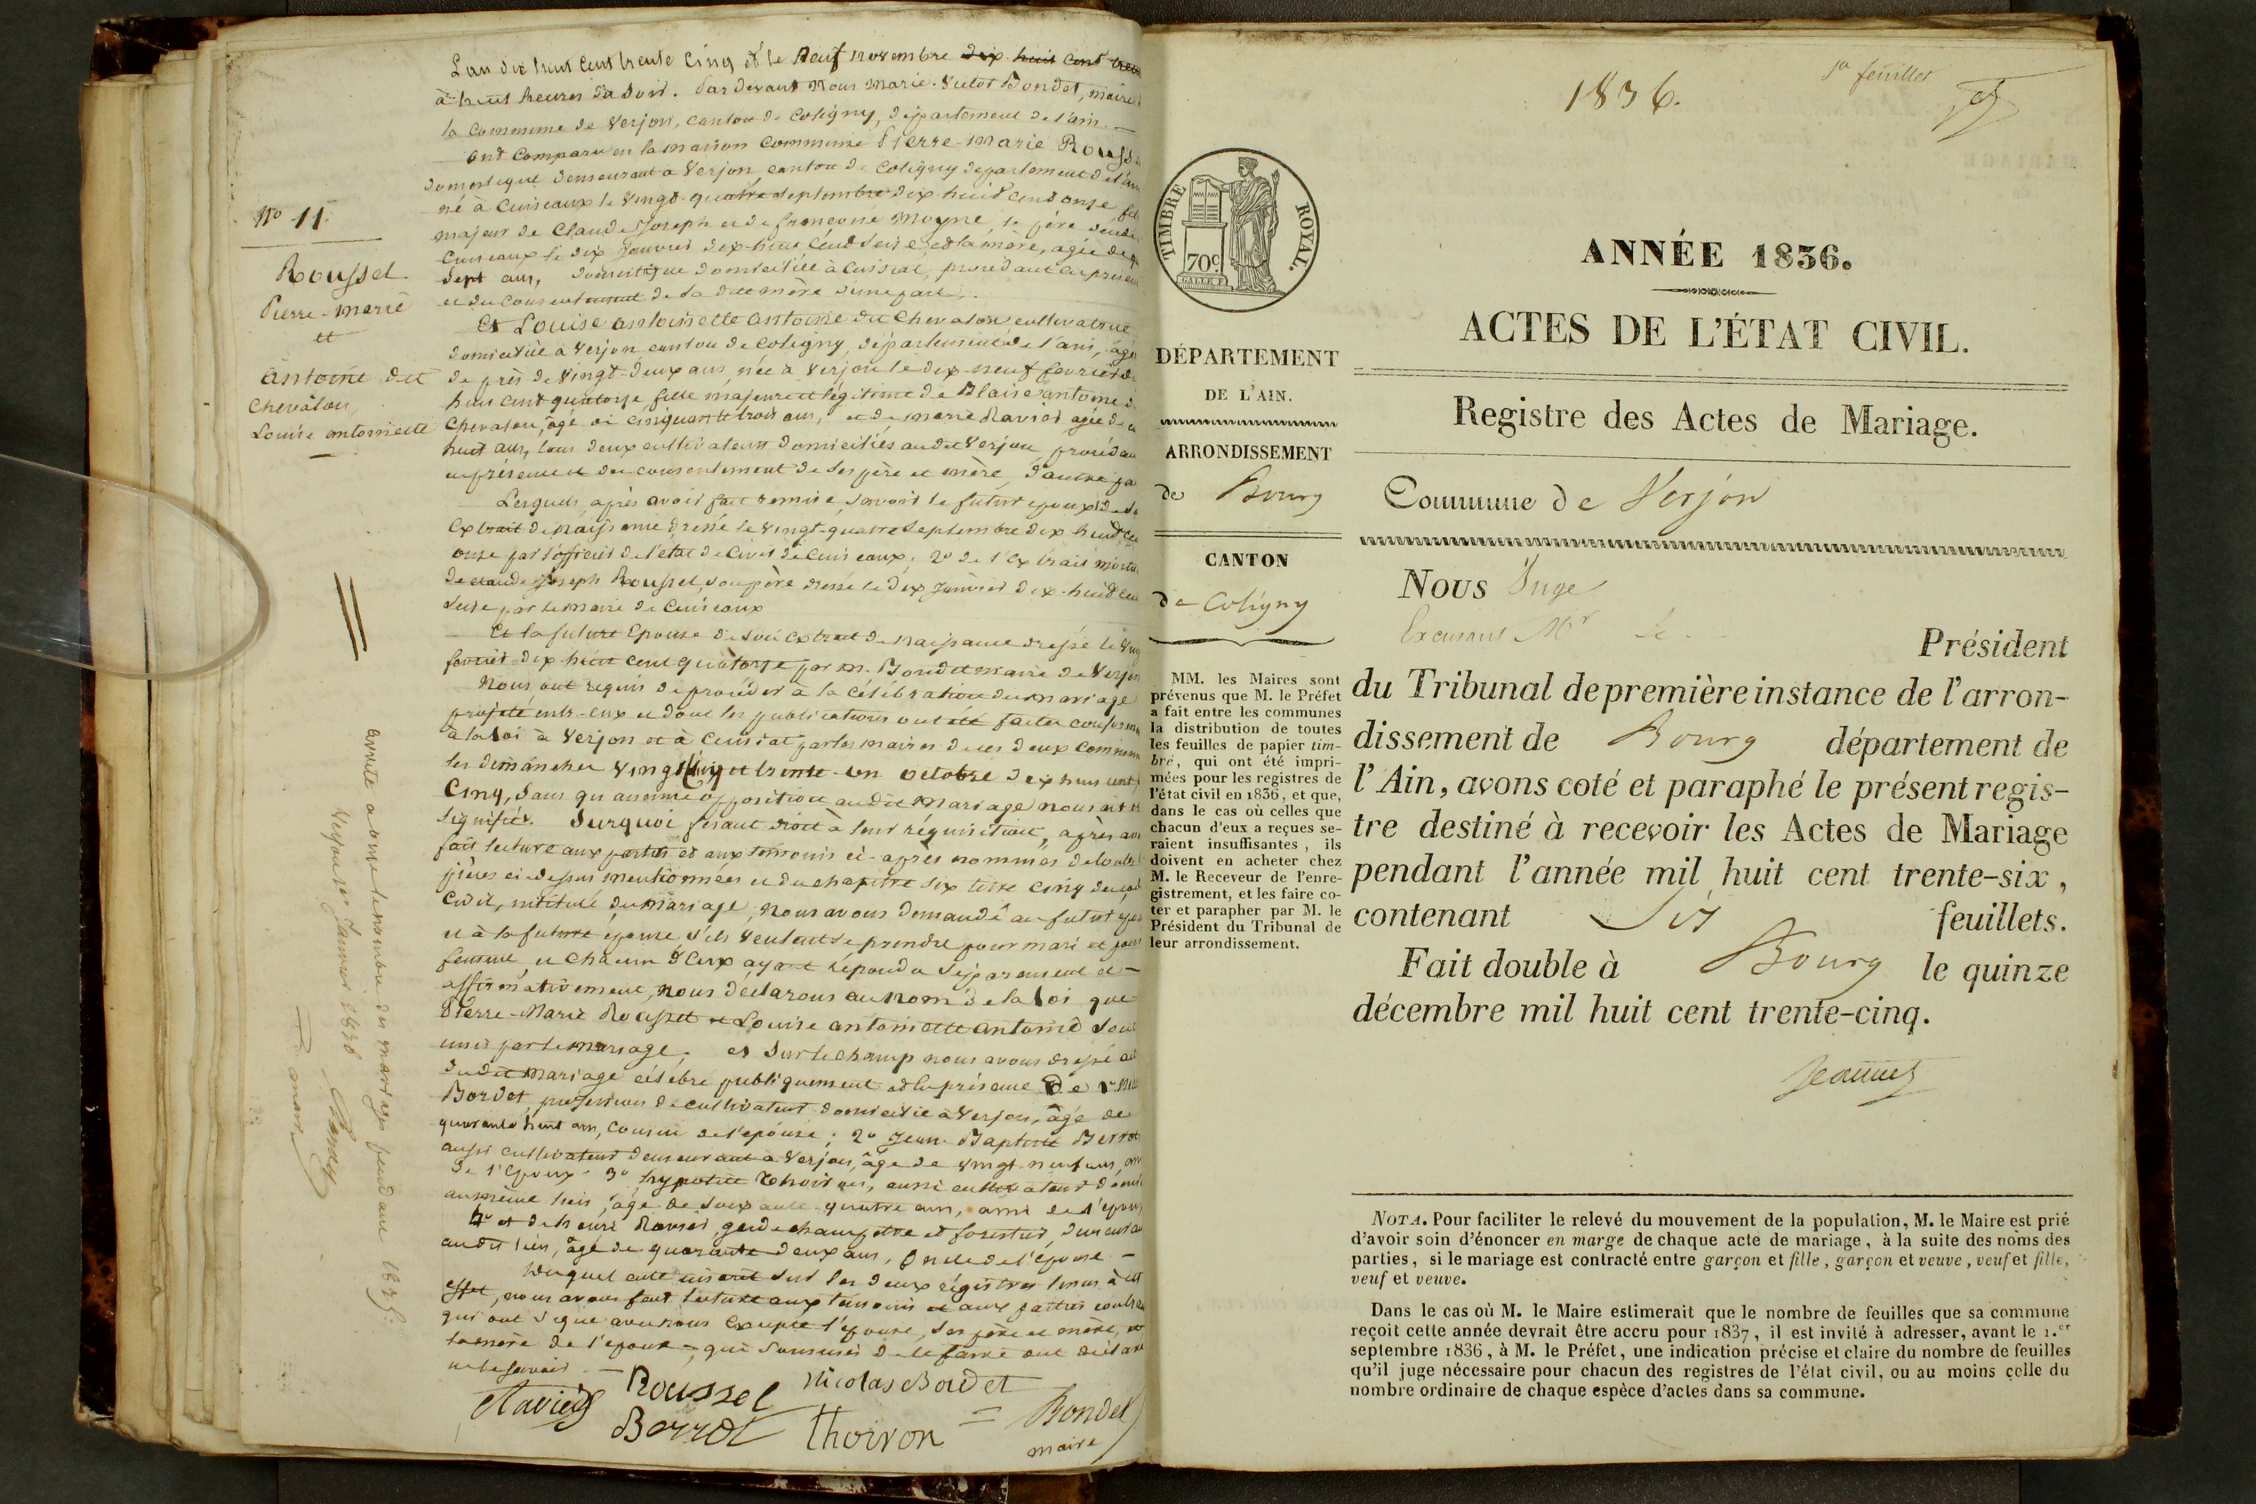 L'an dix huit cent trente cinq et le Neuf novembre dix huit cent
à huit heures du soir. Par devant Nous Marie-Victor Bondet, maire
la Commune de Verjon, canton de Coligny, département de l'ain.
ont Comparu en la maison Commune Pierre-Marie
domestique demeurant à Verjon, canton de Coligny departement de l'ain
né à Cuiseaux le vingt-quatre septembre dix huit cent onze
majeur de Claude Joseph et de françoise Moyne, le père
Cuiseaux le dix Janvier dix-huit Cent seize et la mère, agée de
sept ans, domestique domiciliée à Cuisiat, procédant
et du consentement de sa dite mère d'une part.
Et Louise antoinette antoine dit Chevalon cultivatrice
domiciliée à Verjon canton de Coligny, département de l'ain, agée
de près de vingt-deux ans, née à Verjon le dix-neuf fevrier
huit cent quatorze, fille majeure et légitime de Blaise antoine
Chevalon, âgé de cinquante trois ans, et de marie Ravier agée de
huit ans, tous deux cultivateurs domiciliés au dit Verjon, procédant
en présence et du consentement de ses père et mère, d'autre
Lesquels, après avoir fait remise, savoir le futur epoux 1º
Extrait de naissance dressé le vingt-quatre septembre dix huit
onze par l'officier de l'état de Civil de Cuiseaux; 2º de l'Extrait
de claude Joseph Roussel, son père dressé le dix Janvier dix-huit
seize par le maire de Cuiseaux
Et la future Epouse de son extrait de naissance dressé le
fevrier dix-huit cent quatorze par M. Bondet maire de Verjon
Nous ont requis de procéder à la célébration du mariage
projeté entr-eux et dont les publications ont été faites
à la loi à Verjon et à Cuisiat par les maires de ces deux
les dimanches vingt Cinq et trente-un octobre dix huit cent
Cinq, sans qu'aucune opposition audit Mariage nous ait
signifiée. Surquoi fesant droit à leur réquisition, après
fait lecture aux parties et aux témoins ci-après nommés
pièces ci-dessus mentionnées et du chapitre six titre cinq du
Civil, intitulé du Mariage, nous avons demandé au futur
et à la future epouse s'ils veulent se prendre pour mari et pour
femme, et chacun d'Eux ayant répondu séparément et
affirmativement, nous déclarons au nom de la loi que
Pierre-Marie Roussel et Louise antoinette antoine sont
unis par le mariage; et sur le champ nous avons dressé
du dit mariage célébré publiquement en la présence De 1º
Bordet profession de cultivateur domicilié à Verjon, âgé de
quarante huit ans, cousin de l'epouse; 2º Jean-Baptiste
aussi cultivateur demeurant à Verjon, âgé de vingt-neuf ans,
de l'Epoux 3º hypolite Thoiron, aussi cultivateur
au même lieu, âgé de soixante quatre ans, ami de l'epoux
4º et de henri Ravier, garde champêtre et forestier,
au dit lieu, âgé de quarante deux ans, oncle de l'epouse
Duquel acte inscrit sur les deux régistres tenus à cet
effet, nous avons fait lecture aux témoins et aux parties
qui ont signé avec nous Excepté l'epouse, ses père et mère, et
la mère de l'epoux, qui sommés de le faire ont déclaré
ne le savoir
Ravier Roussel Nicolas Bordet
Berrod Thoiron Bondet
maire
Nº 11.
Roussel
Pierre-marie
et
antoine dit
Chevalon,
Louise antoinette
arrêté à onze le nombre des mariages pendant 1835.
Verjon 1er Janvier 1836
Bondet
maire
1836.
1er feuillet
TIMBRE ROYAL.
70c
DÉPARTEMENT
DE L'AIN.
ARRONDISSEMENT
de Bourg
CANTON
de Coligny
MM. les Maires sont
prévenus que M. le Préfet
a fait entre les communes
la distribution de toutes
les feuilles de papier tim-
bré, qui ont été impri-
mées pour les registres de
l'état civil en 1836, et que,
dans le cas où celles que
chacun d'eux a reçues se-
raient insuffisantes, ils
doivent en acheter chez
M. le Receveur de l'enre-
gistrement, et les faire co-
ter et parapher par M. le
Président du Tribunal de
leur arrondissement.
ANNÉE 1836.
ACTES DE L'ÉTAT CIVIL.
Registre des Actes de Mariage.
Commune de Verjon
Nous Juge
Excusant Mr le
Président
du Tribunal de première instance de l'arron-
dissement de Bourg département de
l'Ain, avons coté et paraphé le présent regis-
tre destiné à recevoir les Actes de Mariage
pendant l'année mil huit cent trente-six,
contenant Six feuillets.
Fait double à Bourg le quinze
décembre mil huit cent trente-cinq.
NOTA. Pour faciliter le relevé du mouvement de la population, M. le Maire est prié
d'avoir soin d'énoncer en marge de chaque acte de mariage, à la suite des noms des
parties, si le mariage est contracté entre garçon et fille, garçon et veuve, veuf et fille,
veuf et veuve.
Dans le cas où M. le Maire estimerait que le nombre de feuilles que sa commune
reçoit cette année devrait être accru pour 1837, il est invité à adresser, avant le 1.er
septembre 1836, à M. le Préfet, une indication précise et claire du nombre de feuilles
qu'il juge nécessaire pour chacun des registres de l'état civil, ou au moins celle du
nombre ordinaire de chaque espèce d'actes dans sa commune.